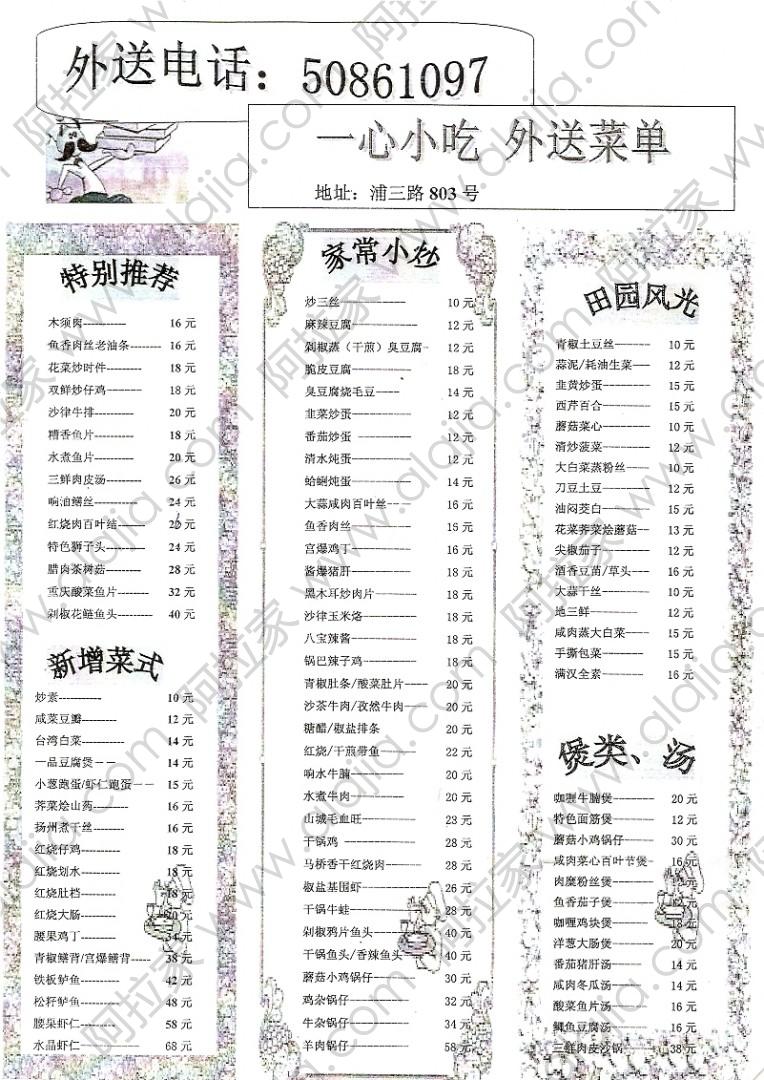 外送电话：50861097
一心小吃 外送菜单
地址：浦三路 803 号
特别推荐
木须肉----------- 16 元
鱼香肉丝老油条-------- 16 元
花菜炒时件--------- 18 元
双鲜炒仔鸡--------- 18 元
沙律牛排---------- 20 元
糟香鱼片---------- 18 元
水煮鱼片---------- 20 元
三鲜肉皮汤--------- 26 元
响油鳝丝---------- 24 元
红烧肉百叶结------- 22 元
特色狮子头--------- 24 元
腊肉茶树菇--------- 28 元
重庆酸菜鱼片-------- 32 元
剁椒花鲢鱼头-------- 40 元
新增菜式
炒素----------- 10 元
咸菜豆瓣--------- 12 元
台湾白菜--------- 14 元
一品豆腐煲－－ 14 元
小葱跑蛋/虾仁跑蛋－－ 15 元
荠菜烩山药-------- 16 元
扬州煮干丝-------- 16 元
红烧仔鸡--------- 18 元
红烧划水--------- 18 元
红烧肚档--------- 18 元
红烧大肠--------- 20 元
腰果鸡丁--------- 34 元
青椒鳝背/宫爆鳝背----- 38 元
铁板鲈鱼--------- 42 元
松籽鲈鱼--------- 48 元
腰果虾仁--------- 58 元
水晶虾仁--------- 68 元
家常小炒
炒三丝-------------- 10 元
麻辣豆腐------------ 12 元
剁椒蒸（干煎）臭豆腐-- 12 元
脆皮豆腐------------ 18 元
臭豆腐烧毛豆---- 14 元
韭菜炒蛋------------ 12 元
番茄炒蛋 ----------- 12 元
清水炖蛋------------ 12 元
蛤蜊炖蛋------------ 14 元
大蒜咸肉百叶丝---- 16 元
鱼香肉丝------------ 15 元
宫爆鸡丁------------ 16 元
酱爆猪肝------------ 18 元
黑木耳炒肉片-------- 18 元
沙律玉米烙---------- 18 元
八宝辣酱------------ 18 元
锅巴辣子鸡---------- 18 元
青椒肚条/酸菜肚片---- 20 元
沙茶牛肉/孜然牛肉---- 20 元
糖醋/椒盐排条 20 元
红烧/干煎带鱼------- 22 元
响水牛腩------------ 20 元
水煮牛肉------------ 20 元
山城毛血旺---------- 23 元
干锅鸡 ------------- 28 元
马桥香干红烧肉------ 28 元
椒盐基围虾---------- 26 元
干锅牛蛙------------ 28 元
剁椒鸦片鱼头-------- 40 元
干锅鱼头/香辣鱼头 40 元
蘑菇小鸡锅仔-------- 30 元
鸡杂锅仔------------ 32 元
牛杂锅仔------------ 34 元
羊肉锅仔------------ 58 元
田园风光
青椒土豆丝----- 10 元
蒜泥/耗油生菜--- 12 元
韭黄炒蛋------- 15 元
西芹百合------- 15 元
蘑菇菜心------- 10 元
清炒菠菜------- 12 元
大白菜蒸粉丝---- 10 元
刀豆土豆------- 12 元
油闷茭白------- 15 元
花菜荠菜烩蘑菇-- 13 元
尖椒茄子------- 12 元
酒香豆苗/草头--- 16 元
大蒜干丝------- 10 元
地三鲜-------- 12 元
咸肉蒸大白菜---- 15 元
手撕包菜------- 15 元
满汉全素------- 16 元
煲类、汤
咖喱牛腩煲-------- 20 元
特色面筋煲-------- 12 元
蘑菇小鸡锅仔------ 30 元
咸肉菜心百叶节煲- 16 元
肉糜粉丝煲-------- 12 元
鱼香茄子煲-------- 12 元
咖喱鸡块煲-------- 18 元
洋葱大肠煲-------- 20 元
番茄猪肝汤------ 14 元
咸肉冬瓜汤------ 14 元
酸菜鱼片汤------ 16 元
鲫鱼豆腐汤------ 16 元
三鲜肉皮沙锅------ 38 元
阿拉家 www.alajia.com